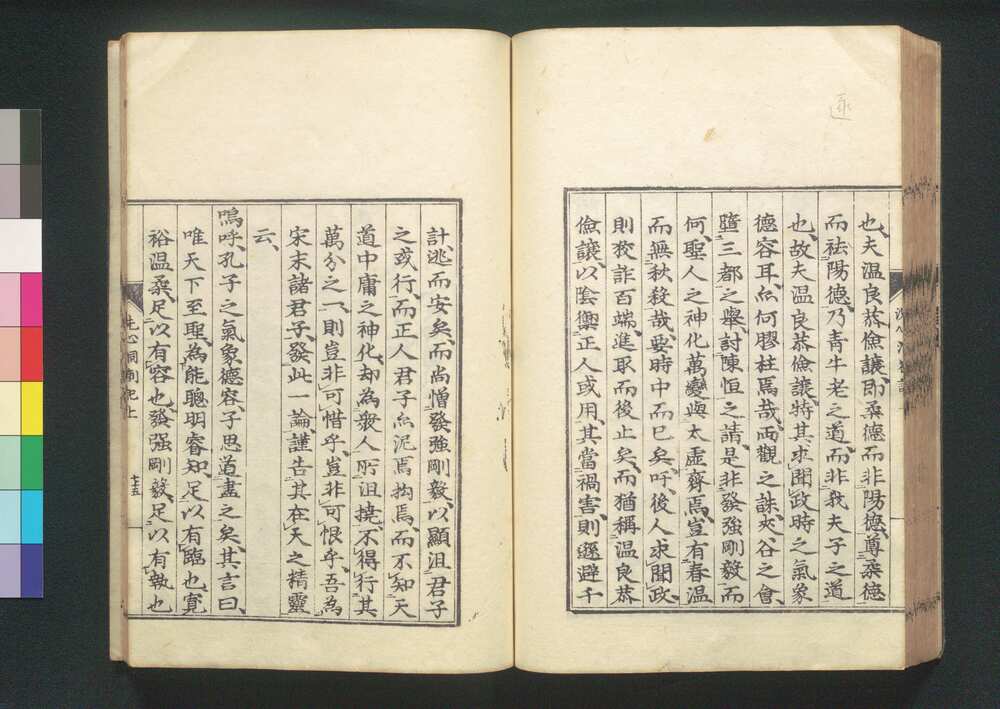 逐
也、夫温良恭儉讓、即柔德而非陽德、尊柔德
而祛陽德、乃青牛老之道、而非我夫子之道
也、故夫温良恭儉讓、特其求聞政時之氣象
德容耳、亦何膠柱焉哉、両觀之誅、夾谷之會、
墮三都之擧、討陳恒之請、是非發強剛毅而
何、聖人之神化萬變、與太虚齊焉、豈有春温
而無秋殺哉、要時中而已矣、吁、後人求聞政、
則狡詐百端進取而後止矣、而猶稱温良恭
儉讓、以陰禦正人或用、其當禍害、則遜避千
計、逃而安矣、而尚憎發強剛毅、以顯沮君子
之或行、而正人君子亦泥焉拘焉、而不知天
道中庸之神化、却為衆人所沮撓、不得行其
萬分之一、則豈非可惜乎、豈非可恨乎、吾為
宋末諸君子、發此一論、謹告其在天之精靈
云、
嗚呼、孔子之氣象德容、子思道盡之矣、其言曰、
唯天下至聖、為能聰明睿知、足以有臨也、寛
裕温柔、足以有容也、發强剛毅、足以有執也
洗心洞劄記上
十五